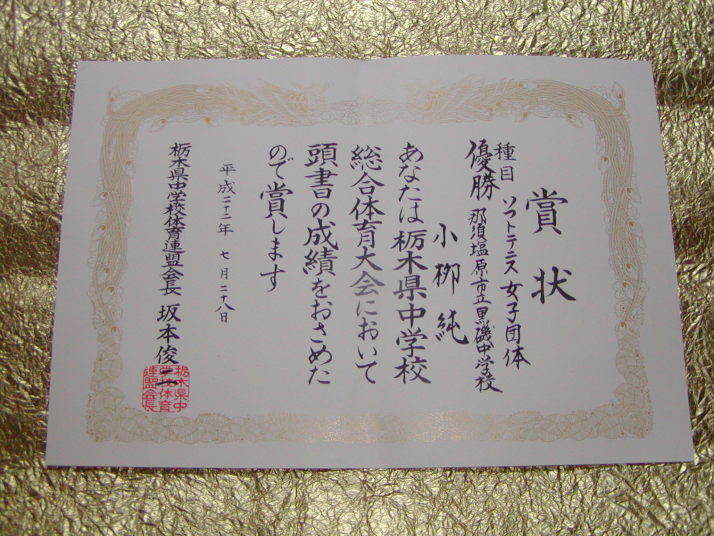 賞状
種目 ソフトテニス 女子団体
優勝 那須塩原市立黒磯中学校
小栁 純
あなたは栃木県中学校
総合体育大会において
頭書の成績をおさめた
ので賞します
平成二十二年 七月二十八日
栃木県中学校体育連盟会長 坂本俊二
栃木県中
学校体育
連盟会長